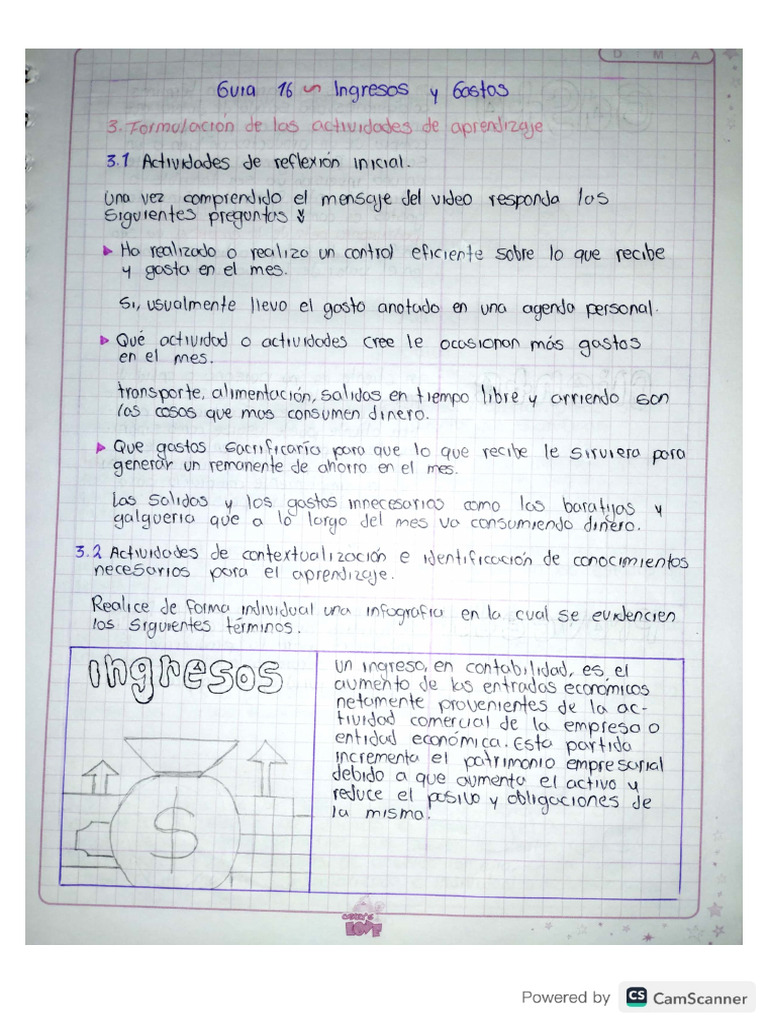 D M A
Guia 16 Ingresos y Gastos
3. Formulación de las actividades de aprendizaje
3.1 Actividades de reflexión inicial.
Una vez comprendido el mensaje del video responda las
siguientes preguntas
Ha realizado o realizo un control eficiente sobre lo que recibe
y gasta en el mes.
Si, usualmente llevo el gasto anotado en una agenda personal.
Qué actividad o actividades cree le ocasionan más gastos
en el mes.
transporte, alimentación, salidas en tiempo libre y arriendo son
las cosas que mas consumen dinero.
Que gastos sacrificaría para que lo que recibe le sirviera para
generar un remanente de ahorro en el mes.
Las salidas y los gastos innecesarios como las baratijas y
galguería que a lo largo del mes va consumiendo dinero.
3.2 Actividades de contextualización e identificación de conocimientos
necesarios para el aprendizaje.
Realice de forma individual una infografia en la cual se evidencien
los siguientes términos.
ingresos
$
un ingreso, en contabilidad, es el
aumento de las entradas económicas
netamente provenientes de la ac-
tividad comercial de la empresa o
entidad económica. Esta partida
incrementa el patrimonio empresarial
debido a que aumenta el activo y
reduce el pasivo y obligaciones de
la misma.
LOVE
Powered by CS CamScanner